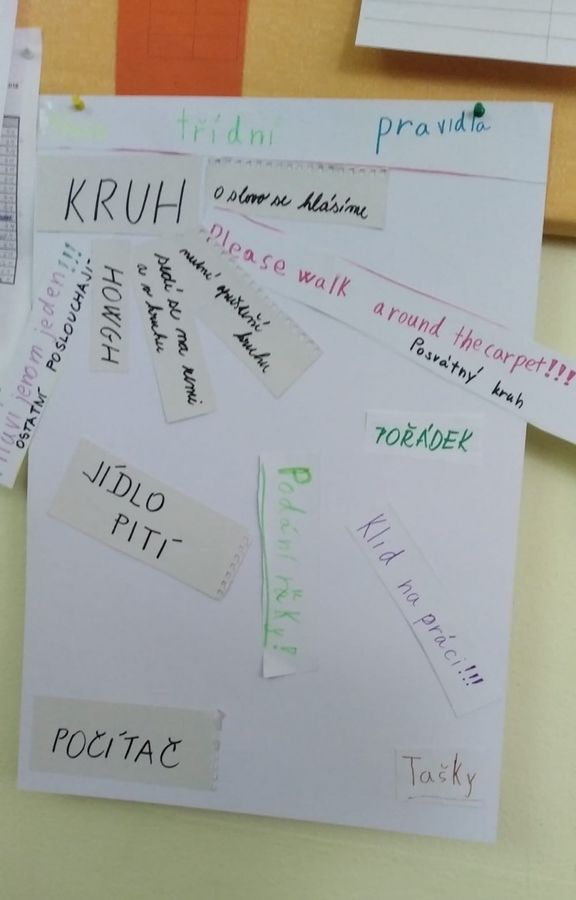 třídní pravidla
KRUH
o slovo se hlásíme
Please walk around the carpet!!!
Posvátný kruh
mluví jenom jeden!!!
OSTATNÍ POSLOUCHAJÍ
HOWGH
sedí se na zemi
a v kruhu
nutné opuštění kruhu
POŘÁDEK
JÍDLO
PITÍ
Podání růky!
Klid na práci!!!
POČÍTAČ
Tašky